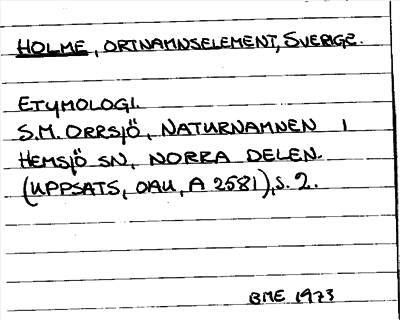 HOLME, ORTNAMNSELEMENT, SVERIGE.
ETYMOLOGI.
S.M. ORRSJÖ, NATURNAMNEN I
HEMSJÖ SN, NORRA DELEN.
(UPPSATS, OAU, A 2581), S. 2.
BME 1973